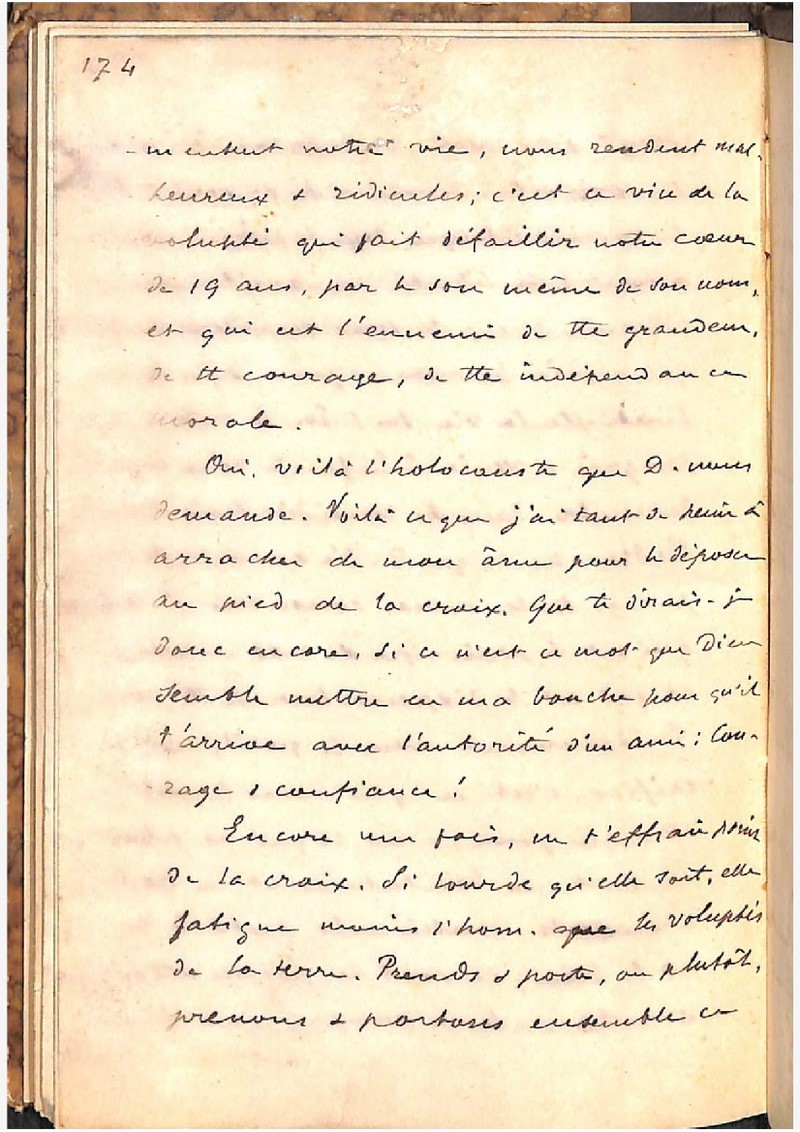 174
-mentent notre vie, nous rendent mal-
heureux & ridicules; c'est ce vice de la
volupté qui fait défaillir notre cœur
de 19 ans, par le son même de son nom,
et qui est l'ennemi de tte grandeur,
de tt courage, de tte indépendance
morale.
Oui, voilà l'holocauste que D. nous
demande. Voilà ce que j'ai tant de peine à
arracher de mon âme pour le déposer
au pied de la croix. Que te dirais-je
donc encore, si ce n'est ce mot que Dieu
semble mettre en ma bouche pour qu'il
t'arrive avec l'autorité d'un ami: Cou-
rage & confiance!
Encore une fois, ne t'effraie point
de la croix. Si lourde qu'elle soit, elle
fatigue moins l'hom. que les voluptés
de la terre. Prends & porte, ou plutôt,
prenons & portons ensemble ce